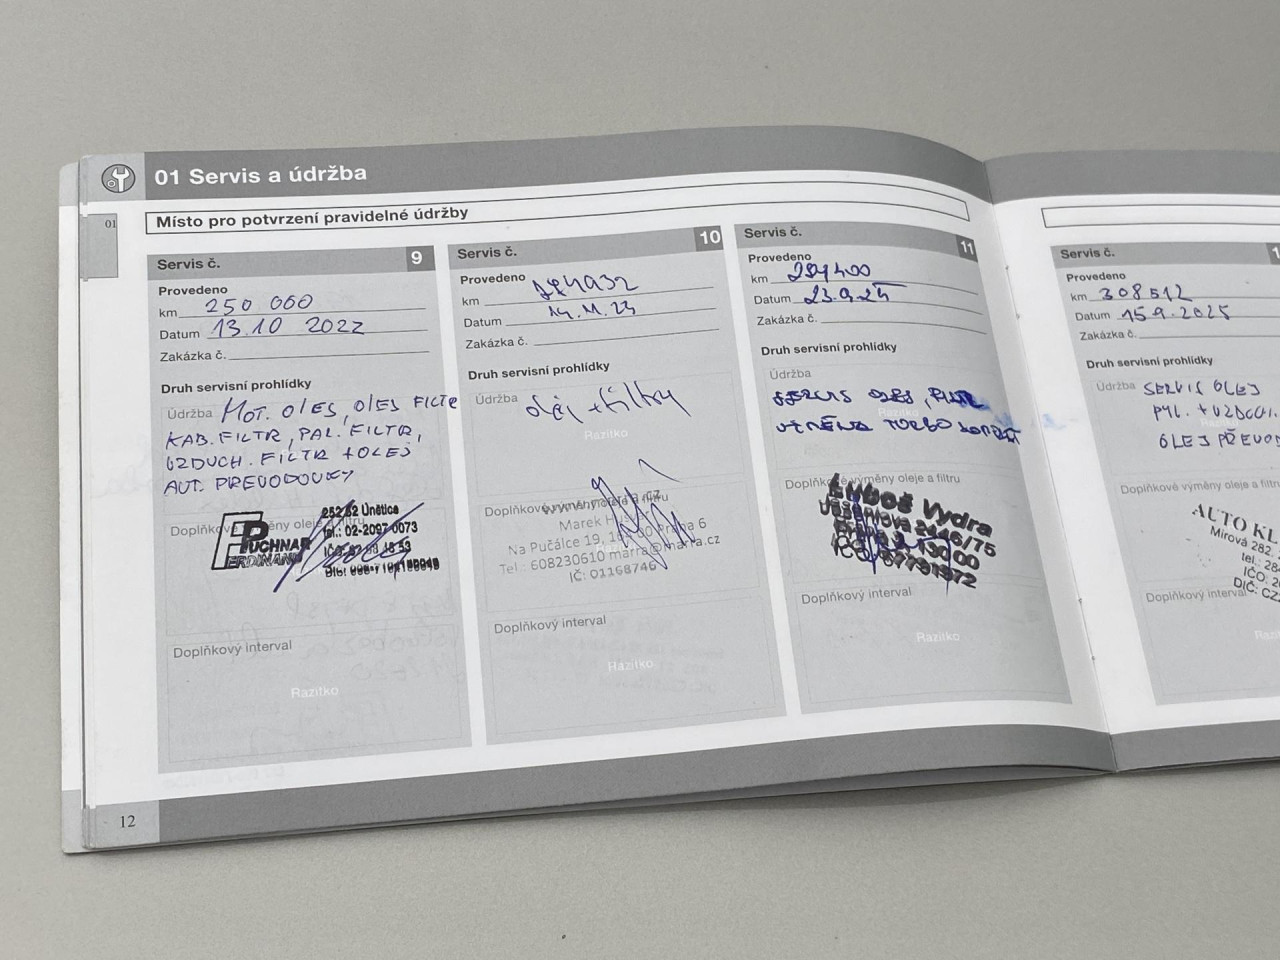 01 Servis a údržba
01
Místo pro potvrzení pravidelné údržby
Servis č. 9
Provedeno
km 250 000
Datum 13.10 2022
Zakázka č.
Druh servisní prohlídky
Údržba MOT. OLEJ, OLEJ FILTR
KAB. FILTR, PAL. FILTR,
VZDUCH. FILTR + OLEJ
AUT. PREVODOVKY
Doplňkové výměny oleje a filtru
PUCHNAR
FERDINAND
252 62 Únětice
tel.: 02-2097 0073
IČO:
DIČ:
Doplňkový interval
Razítko
12
Servis č. 10
Provedeno
km 274932
Datum 14.11.23
Zakázka č.
Druh servisní prohlídky
Údržba olej + filtry
Razítko
Doplňkové výměny oleje a filtru
Marek
Na Pučálce 19, Praha 6
Tel.: 608230610 marra@marra.cz
IČ: 01168746
Doplňkový interval
Razítko
Servis č. 11
Provedeno
km 291400
Datum 23.9.24
Zakázka č.
Druh servisní prohlídky
Údržba
SERVIS OLEJ, FILTR
Razítko
VÝMĚNA TURBO
Doplňkové výměny oleje a filtru
Luboš Vydra
2446/75
Praha 3, 130 00
IČO
Doplňkový interval
Razítko
Servis č.
Provedeno
km 308512
Datum 15.9.2025
Zakázka č.
Druh servisní prohlídky
Údržba SERVIS OLEJ
PYL. + VZDUCH.
OLEJ PŘEVOD
Doplňkové výměny oleje a filtru
AUTO KL
Mirová 282,
tel.: 28
IČO: 2
DIČ: CZ
Doplňkový interval
Razít